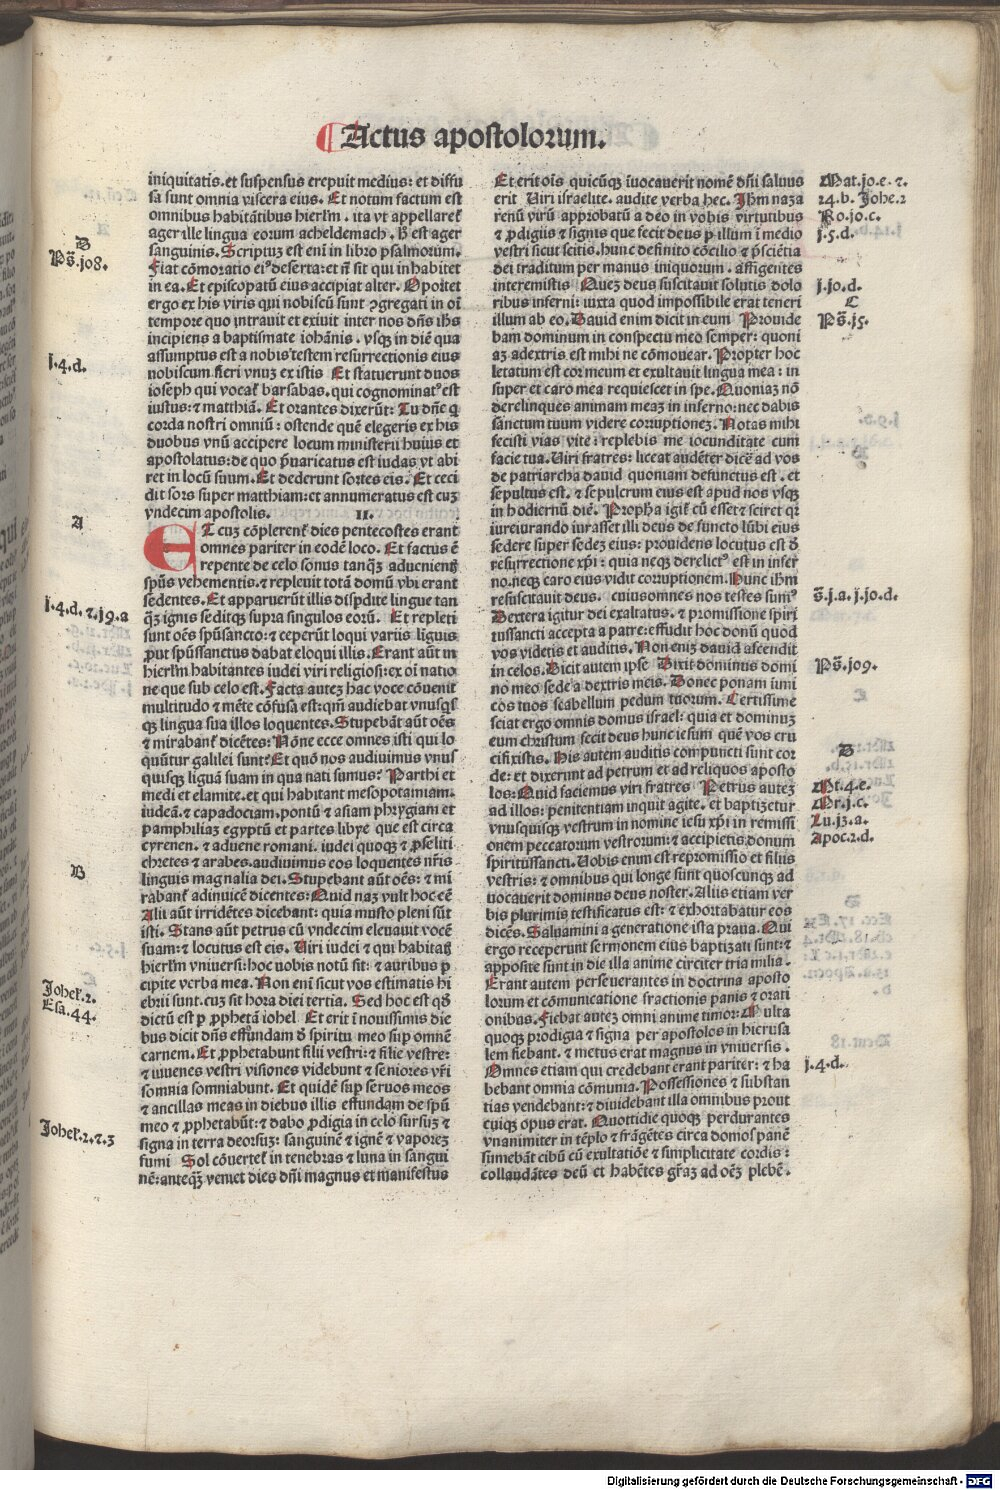 Actus apostolorum.
iniquitatis. et suspensus crepuit medius: et diffu
sa sunt omnia viscera eius. Et notum factum est
omnibus habitãtibus hierlm̃. ita vt appellareƭ
ager ille lingua eorum acheldemach. h̃ est ager
sanguinis. Scriptuƺ est eni͂ in libro psalmorum.
Fiat cõmoratio eiꝰ deserta: et nõ sit qui inhabitet
in ea. Et episcopatũ eius accipiat alter. Oportet
ergo ex his viris qui nobiscũ sunt ꝯgregati in oi͂
tempore quo intrauit et exiuit inter nos dñs ihs
incipiens a baptismate iohãnis. vsqƺ in diẽ qua
assumptus est a nobis testem resurrectionis eius
nobiscum fieri vnuƺ ex istis Et statuerunt duos
ioseph qui vocaƭ barsabas. qui cognominatꝰ est
iustus: ⁊ matthiã. Et orantes dixerũt: Tu dñe q
corda nostri omniũ: ostende quẽ elegeris ex his
duobus vnũ accipere locum ministerii huius et
apostolatus: de quo p̃uaricatus est iudas vt abi
ret in locũ suum. Et dederunt sortes eis. Et ceci
dit sors super matthiam: et annumeratus est cuƺ
vndecim apostolis. II.
ET cuƺ cõplerenƭ dies pentecostes erant
omnes pariter in eodẽ loco. Et factus ẽ
repente de celo sonus tanqƺ̃ aduenientƺ
spũs vehementis. et repleuit totã domũ vbi erant
sedentes. Et apparuerũt illis dispdite lingue tan
qƺ̃ ignis seditqƺ supra singulos eorũ. Et repleti
sunt oẽs spũsancto: ⁊ ceperũt loqui variis liguis
ꝓut spũssanctus dabat eloqui illis. Erant aũt in
hierlm̃ habitantes iudei viri religiosi: ex oi͂ natio
ne que sub celo est. Facta auteƺ hac voce cõuenit
multitudo ⁊ mẽte cõfusa est: qm̃ audiebat vnusqƺ
qƺ lingua sua illos loquentes. Stupebãt aũt oẽs
⁊ mirabanƭ dicẽtes: Nõne ecce omnes isti qui lo
quũtur galilei sunt? Et quõ nos audiuimus vnus
quisqƺ liguã suam in qua nati sumus? Parthi et
medi et elamite. et qui habitant mesopotamiam.
iudeã. ⁊ capadociam. pontũ ⁊ asiam phrygiam et
pamphiliaƺ egyptũ et partes libye que est circa
cyrenen. ⁊ aduene romani. iudei quoqƺ ⁊ ꝓseliti
chretes et arabes. audiuimus eos loquentes nr̃is
linguis magnalia dei. Stupebant aũt oẽs: ⁊ mi
rabanƭ adinuicẽ dicentes: Quid naƺ vult hoc eẽ
Alii aũt irridẽtes dicebant: quia musto pleni sũt
isti. Stans aũt petrus cũ vndecim eleuauit vocẽ
suam: ⁊ locutus est eis. Uiri iudei ⁊ qui habitatƺ
hierlm̃ vniuersi: hoc uobis notũ sit: ⁊ auribus ꝑ
cipite verba mea. Non eni͂ sicut vos estimatis hi
ebrii sunt. cuƺ sit hora diei tertia. Sed hoc est qd̃
dictũ est ꝑ ꝓphetã iohel Et erit i͂ nouissimis die
bus dicit dñs effundam d̃ spiritu meo sup omnẽ
carnem. Et ꝓphetabunt filii vestri: ⁊ filie vestre:
⁊ iuuenes vestri visiones videbunt ⁊ seniores vr̃i
somnia somniabunt. Et quidẽ sup seruos meos
⁊ ancillas meas in diebus illis effundam de spũ
meo ⁊ ꝓphetabũt: ⁊ dabo ꝓdigia in celo sursuƺ ⁊
signa in terra deorsuƺ: sanguinẽ ⁊ ignẽ ⁊ vaporeƺ
fumi Sol cõuerteƭ in tenebras ⁊ luna in sangui
nẽ: anteqƺ̃ veniet dies dñi magnus et manifestus
B
Ps̃. j08.
j. 4. d.
A
j. 4. d. ⁊. j9. a
B
Johel. 2.
Esa. 44.
Johel. 2. ⁊. 3
Et erit ois̃ quicũqƺ i͂uocauerit nomẽ dñi saluus
erit Uiri israelite. audite verba hec. Jhm̃ naza
renũ virũ approbatũ a deo in vobis virtutibus
⁊ ꝓdigiis ⁊ signis que fecit deus ꝑ illum i͂ medio
vestri sicut scitis. hunc definito cõcilio ⁊ p̃sciẽtia
dei traditum per manus iniquorum. affigentes
interemistis Queƺ deus suscitauit solutis dolo
ribus inferni: iuxta quod impossibile erat teneri
illum ab eo. Dauid enim dicit in eum Prouide
bam dominum in conspectu meo semper: quoni
aƺ adextris est mihi ne cõmouear. Propter hoc
letatum est cor meum et exultauit lingua mea: in
super et caro mea requiescet in spe. Quoniaƺ nõ
derelinques animam meaƺ in inferno: nec dabis
sanctum tuum videre corruptioneƺ. Notas mihi
fecisti vias vite: replebis me iocunditate cum
facie tua. Uiri fratres: liceat audẽter dicẽ ad vos
de patriarcha dauid quoniam defunctus est. et
sepultus est. ⁊ sepulcrum eius est apud nos vsqƺ
in hodiernũ diẽ. Propha igiƭ cũ esset ⁊ sciret qr̃
iureiurando iurasset illi deus de fructo lũbi eius
sedere super sedeƺ eius: prouidens locutus est d̃
resurrectione xp̃i: quia neqƺ derelictꝰ est in infer
no. neqƺ caro eius vidit corruptionem. Hunc ihm̃
resuscitauit deus. cuius omnes nos testes sumꝰ
Dextera igitur dei exaltatus. ⁊ promissione spiri
tussancti accepta a patre: effudit hoc donũ quod
vos videtis et auditis. Non eniƺ dauid ascendit
in celos. Dicit autem ipse Dixit dominus domi
no meo sede a dextris meis. Donec ponam inimi
cos tuos scabellum pedum tuorum. Certissime
sciat ergo omnis domus israel: quia et dominuƺ
eum christum fecit deus hunc iesum quẽ vos cru
cifixistis. His autem auditis compuncti sunt cor
de: et dixerunt ad petrum et ad reliquos aposto
los: Quid faciemus viri fratres Petrus auteƺ
ad illos: penitentiam inquit agite. et baptizetur
vnusquisqƺ vestrum in nomine iesu xp̃i in remissi
onem peccatorum vestrorum: ⁊ accipietis donum
spiritussancti. Uobis enim est repromissio et filiis
vestris: ⁊ omnibus qui longe sunt quoscunqƺ ad
uocauerit dominus deus noster. Aliis etiam ver
bis plurimis testificatus est: ⁊ exhortabatur eos
dicẽs. Saluamini a generatione ista praua. Qui
ergo receperunt sermonem eius baptizati sunt: ⁊
apposite sunt in die illa anime circiter tria milia.
Erant autem perseuerantes in doctrina aposto
lorum et cõmunicatione fractionis panis ⁊ orati
onibus. Fiebat auteƺ omni anime timor: Multa
quoqƺ prodigia ⁊ signa per apostolos in hierusa
lem fiebant. ⁊ metus erat magnus in vniuersis.
Omnes etiam qui credebant erant pariter: ⁊ ha
bebant omnia cõmunia. Possessiones ⁊ substan
tias vendebant: ⁊ diuidebant illa omnibus prout
cuiqƺ opus erat. Quottidie quoqƺ perdurantes
vnanimiter in tẽplo ⁊ frãgẽtes circa domos panẽ
sumebãt cibũ cũ exultatiõe ⁊ simplicitate cordis:
collaudãtes deũ et habẽtes gr̃aƺ ad oẽƺ plebẽ.
Mat. jo. e. ⁊.
24. b. Johe. 2
Ro. jo. c.
j. 5. d.
j. jo. d.
C
Ps̃. j5.
s̃. j. a. j. jo. d.
Ps̃. j09.
D
Mt. 4. e.
Mr. j. c.
Lu. j3. a.
Apoc. 2. d.
j. 4. d.
Digitalisierung gefördert durch die Deutsche Forschungsgemeinschaft - DFG